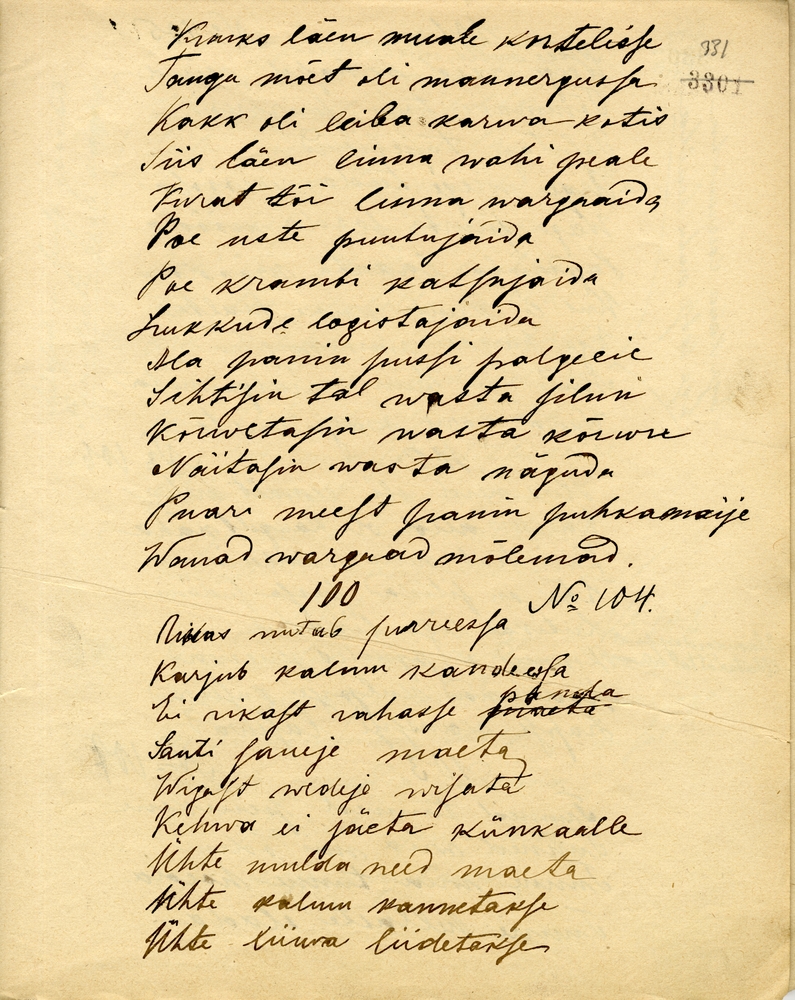 Kuurks läen muale kortelisse
331
Tanga mõet oli mannergussa
3301
Kakk oli leiba karwa kotis
Siis läen linna wahi peale
Kurat tõi linna wargaaida
Poe uste puutujaida
Poe krambi katsujaida
Lukkude logistajaida
Ma panin pussi palgeeie
Sihtisin tal wasta silun
Kõrwetasin wasta kõrwu
Näitasin wasta näguda
Puari meest panin puhkamaije
Wanad wargaad mõlemad.
100 № 104.
Rikas nutab purreessa
Karjub kalmu kandeessa
panda
Ei rikast rahasse maeta
Santi saneje maeta
Wigast wedeje wisata
Kehwa ei jäeta künkaalle
Ühte mulda need maeta
Ühte kalmu kannetakse
Ühte liiwa liidetakse